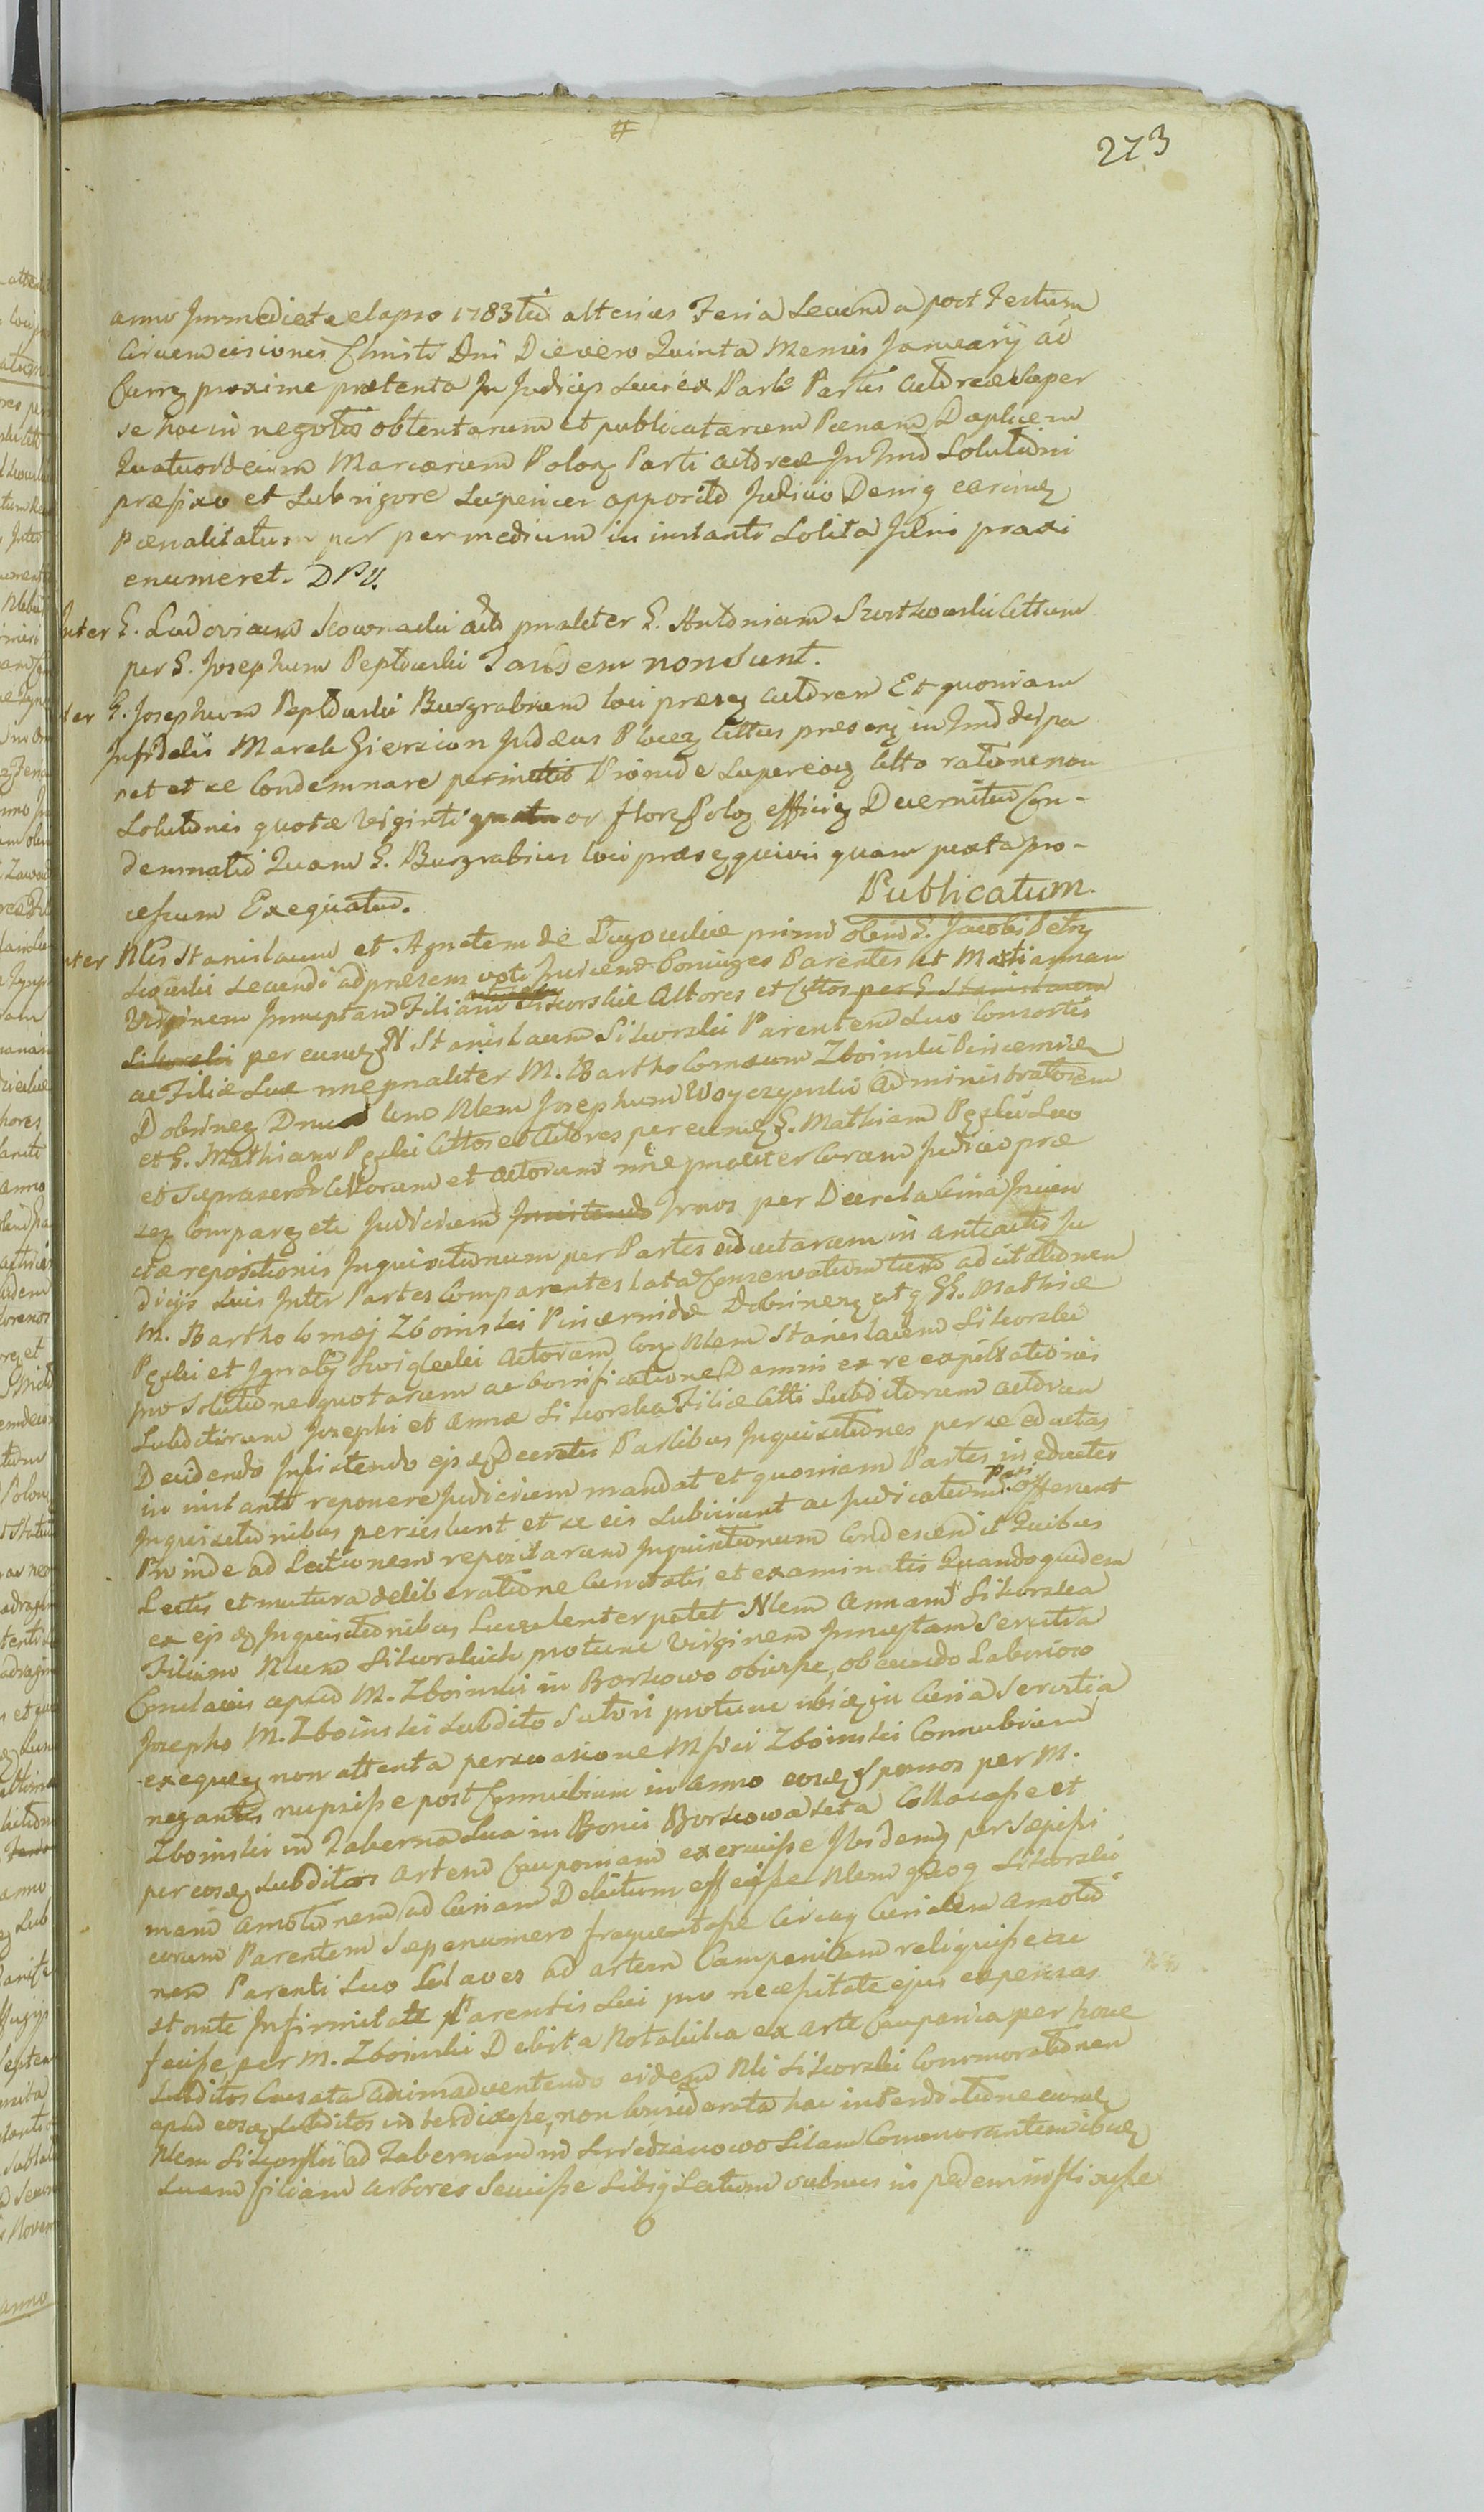 #
273
anno Immediate elapso 1783tii alterius Feria Secunda post Festum
Circumcisionis Christi Dni Die vero Quinta Mensis January ad
Currz proxime praetenta In Judicys Suis ex Parte Partis actoreae super
se hoc in negotio obtentarum et publicatarum Paenam Duplicem
Quatuordecim Marcarum Polonz Parti actoreae In Imo Solutioni
praefixo et Sub rigore superius apposito Judicio Deniq earumz
Paenalitatum par per medium in instanti Solita Jdni praxi
enumeret. DPV.
Inter G. Ludovicum Skownacki acto pnaliter G. Antonium Szostkowski Cittum
per G. Josephum Peptowski Tandem non sunt.
ter G. Josephum Peptowski Burgrabium loci praesz actorem Et quoniam
Infidelis Marek Gierszon Judaeus Plocz Cittus praesenz in Imo des pa
ret et se Condemnare permittit Proinde super eoz Citto ratione non
Solutionis quotae Viginti quatuor florz Polz efficiz Decernitur Con-
demnatio Quam G. Burgrabius loci praesz quivis quam juxta pro-
cessum Exequatur.
Publicatum.
nter Nles Stanislaum et Agnetem de primi olim G. Jacobi
Secundi ad praesens voti Invicem Coniuges Parentes et Mariannam
Virginem Innuptam Filiam Sikorskie Actores et Cittos per G. Stanislaum
Sikorski per eumz N Stanislaum Sikorski Parentem Suo Consortis
ac Filiae Suae nne pnaliter M. Bartholomaeum Zboinski Pincernidz
Dobrinez Dnum Suo Nlem Josephum Woyczynski Administratorem
et G. Mathiam Cittos et Actores per eumz G. Mathiam Suo
et Citorum et actorum nne pnaliter Coram Judicio prae
sez Comparz etc Judicium Insistendo Irnos per Decreta
ctae repositionis Inquisitionum per Partes eductarum in anteactis Ju
dicys Suis Inter Partes Comparentes lata Conservatum ad citationem
M. Bartholomaej Zboinski Pincernidae Dobrinenz atq GG. Mathiae
et Actorum Conz Nlem Stanislaum Sikorski
pro Solutione quotarum ac bonificatione Damni ex re
Subditorum Josephi et Annae Sikorska Filiae Citti Subditorum actorum
Decidendo Insistendo ejsdz Decretis Partibus Inquisitiones per se eductas
in instanti reponere Judicium mandat et quoniam Partes in eductis
Inquisitionibus persistunt et se eis Subiiciunt ac Judicatum pati offerunt
Proinde ad Lectionem repositarum Inquisitionum Condescendit Quibus
Lectis et matura deliberatione et examinatis Quandoquidem
ex ejsdz Inquisitionibus Luculenter patet Nlem Annam Sikorska
Filiam Nlium Sikorskich protunc Virginem Innuptam Servitia
Conclavis apud M. Zboinski in Borkowo obiisse, obeundo Laborioso
Josepho M. Zboinski Subdito Sutori protunc ibidz in Curia Servitia
exequenz non attenta persuasione Mfici Zboinski Connubium
negantis nupsisse post Connubium in anno eosdz Sponsos per M.
Zboinski in Taberna Sua in Bonis Borkowa sita Collocasse et
per eosdz Subditos artem Cauponiam exercuisse Ibidemz per Saepissi
mam amotionem ad Curiam Debitum effecisse Nlem quoq Sikorski
eorum Parentem saepenumero frequentasse Circaq Curialem amotio
nem Parenti Suo Claves ad artem Cauponiam reliquisse
stante Infirmitate Parentis Sui pro necessitate ejus expensas
fecisse per M. Zboinski Debita Notabilia ex arte Cauponia per hoc
subditos Causata animadvertendo eidem Nli Sikorski Commorationem
apud eosdz Subditos interdixisse, non considerata hac interdictione eumz
Nlem Sikorski ad Tabernam in Sitam Commorantem ibidz
Suam filiam arbores Secuisse Sibiq Lectum vulnus in pedem inflixisse